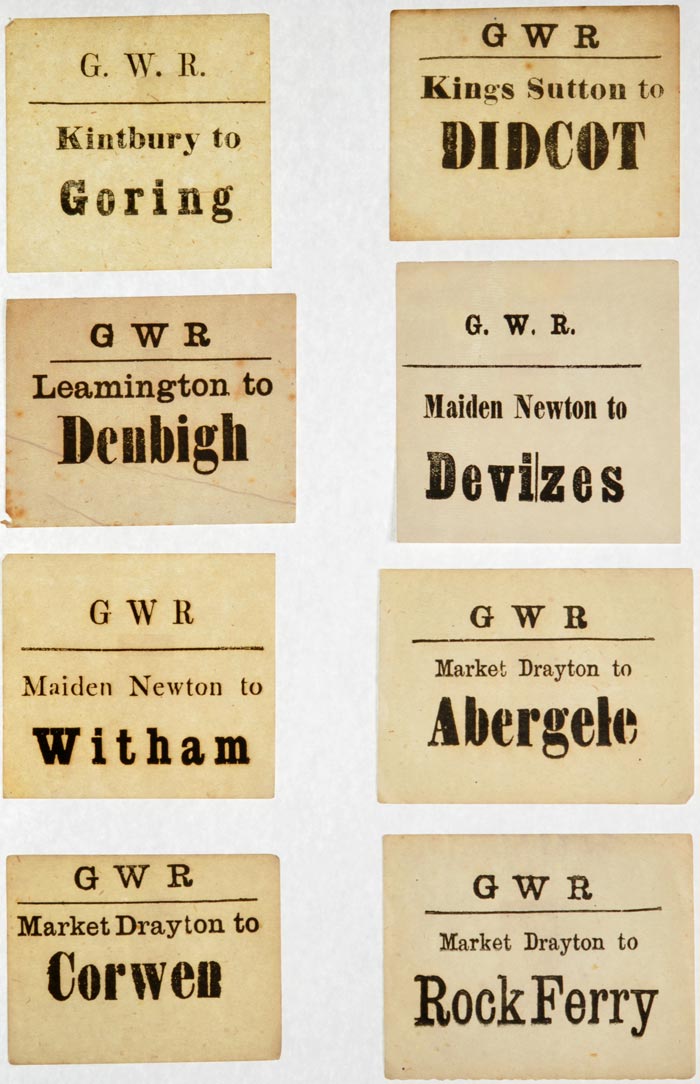 G. W. R.
Kintbury to
Goring
G W R
Kings Sutton to
DIDCOT
G W R
Leamington to
Denbigh
G. W. R.
Maiden Newton to
Devizes
G W R
Maiden Newton to
Witham
G W R
Market Drayton to
Abergele
G W R
Market Drayton to
Corwen
G W R
Market Drayton to
Rock Ferry